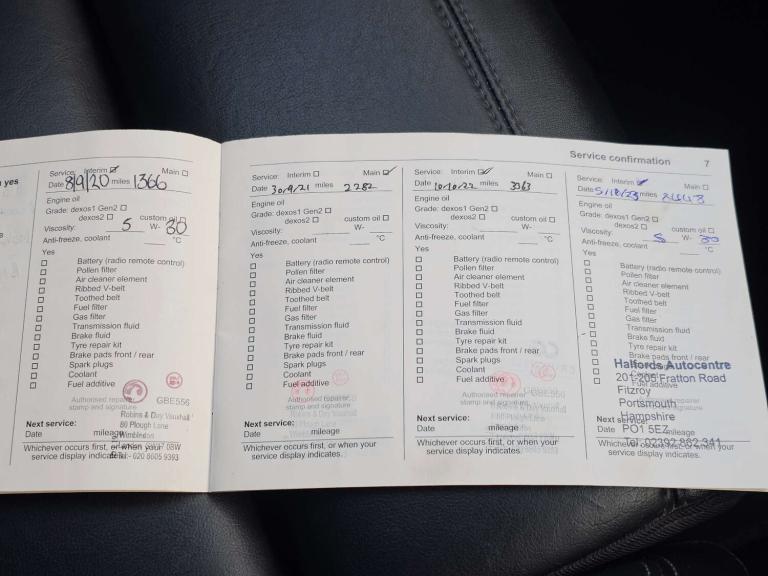 n yes
Service confirmation 7
Service: Interim Main
Date 8/9/20 miles 1366
Engine oil
Grade: dexos1 Gen2
dexos2 custom oil
Viscosity: 5 W- 30
Anti-freeze, coolant °C
Yes
Battery (radio remote control)
Pollen filter
Air cleaner element
Ribbed V-belt
Toothed belt
Fuel filter
Gas filter
Transmission fluid
Brake fluid
Tyre repair kit
Brake pads front / rear
Spark plugs
Coolant
Fuel additive
Authorised repairer
stamp and signature
GBE556
Robins & Day Vauxhall
80 Plough Lane
Wimbledon
Tel - 020 8605 9393
Next service:
Date mileage
Whichever occurs first, or when your
service display indicates.
Service: Interim Main
Date 30/9/21 miles 2282
Engine oil
Grade: dexos1 Gen2
dexos2 custom oil
Viscosity: W-
Anti-freeze, coolant °C
Yes
Battery (radio remote control)
Pollen filter
Air cleaner element
Ribbed V-belt
Toothed belt
Fuel filter
Gas filter
Transmission fluid
Brake fluid
Tyre repair kit
Brake pads front / rear
Spark plugs
Coolant
Fuel additive
Authorised repairer
stamp and signature
Next service:
Date mileage
Whichever occurs first, or when your
service display indicates.
Service: Interim Main
Date 10/10/22 miles 3363
Engine oil
Grade: dexos1 Gen2
dexos2 custom oil
Viscosity: W-
Anti-freeze, coolant °C
Yes
Battery (radio remote control)
Pollen filter
Air cleaner element
Ribbed V-belt
Toothed belt
Fuel filter
Gas filter
Transmission fluid
Brake fluid
Tyre repair kit
Brake pads front / rear
Spark plugs
Coolant
Fuel additive
GBE556
Robins & Day Vauxhall
Plough Lane
Next service:
Date mileage
Whichever occurs first, or when your
service display indicates.
Service: Interim Main
Date miles
Engine oil
Grade: dexos1 Gen2
dexos2 custom oil
Viscosity: 5 W- 30
Anti-freeze, coolant °C
Yes
Battery (radio remote control)
Pollen filter
Air cleaner element
Ribbed V-belt
Toothed belt
Fuel filter
Gas filter
Transmission fluid
Brake fluid
Tyre repair kit
Brake pads front / rear
Coolant
Fuel additive
Halfords Autocentre
201-205 Fratton Road
Fitzroy
Portsmouth
Hampshire
PO1 5EZ
Tel: 02392 862 341
Next service:
Date mileage
Whichever occurs first, or when your
service display indicates.